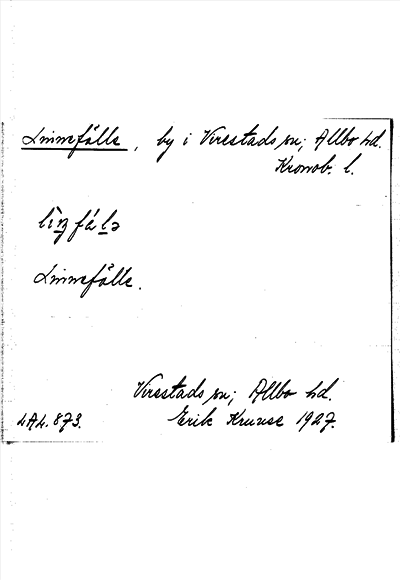 Linnefälle, by i Virestads sn; Allbo hd.
Kronob. l.
lìnfálə
Linnefälle.
Virestads sn; Allbo hd.
LAL. 873. Erik Kruuse 1927.